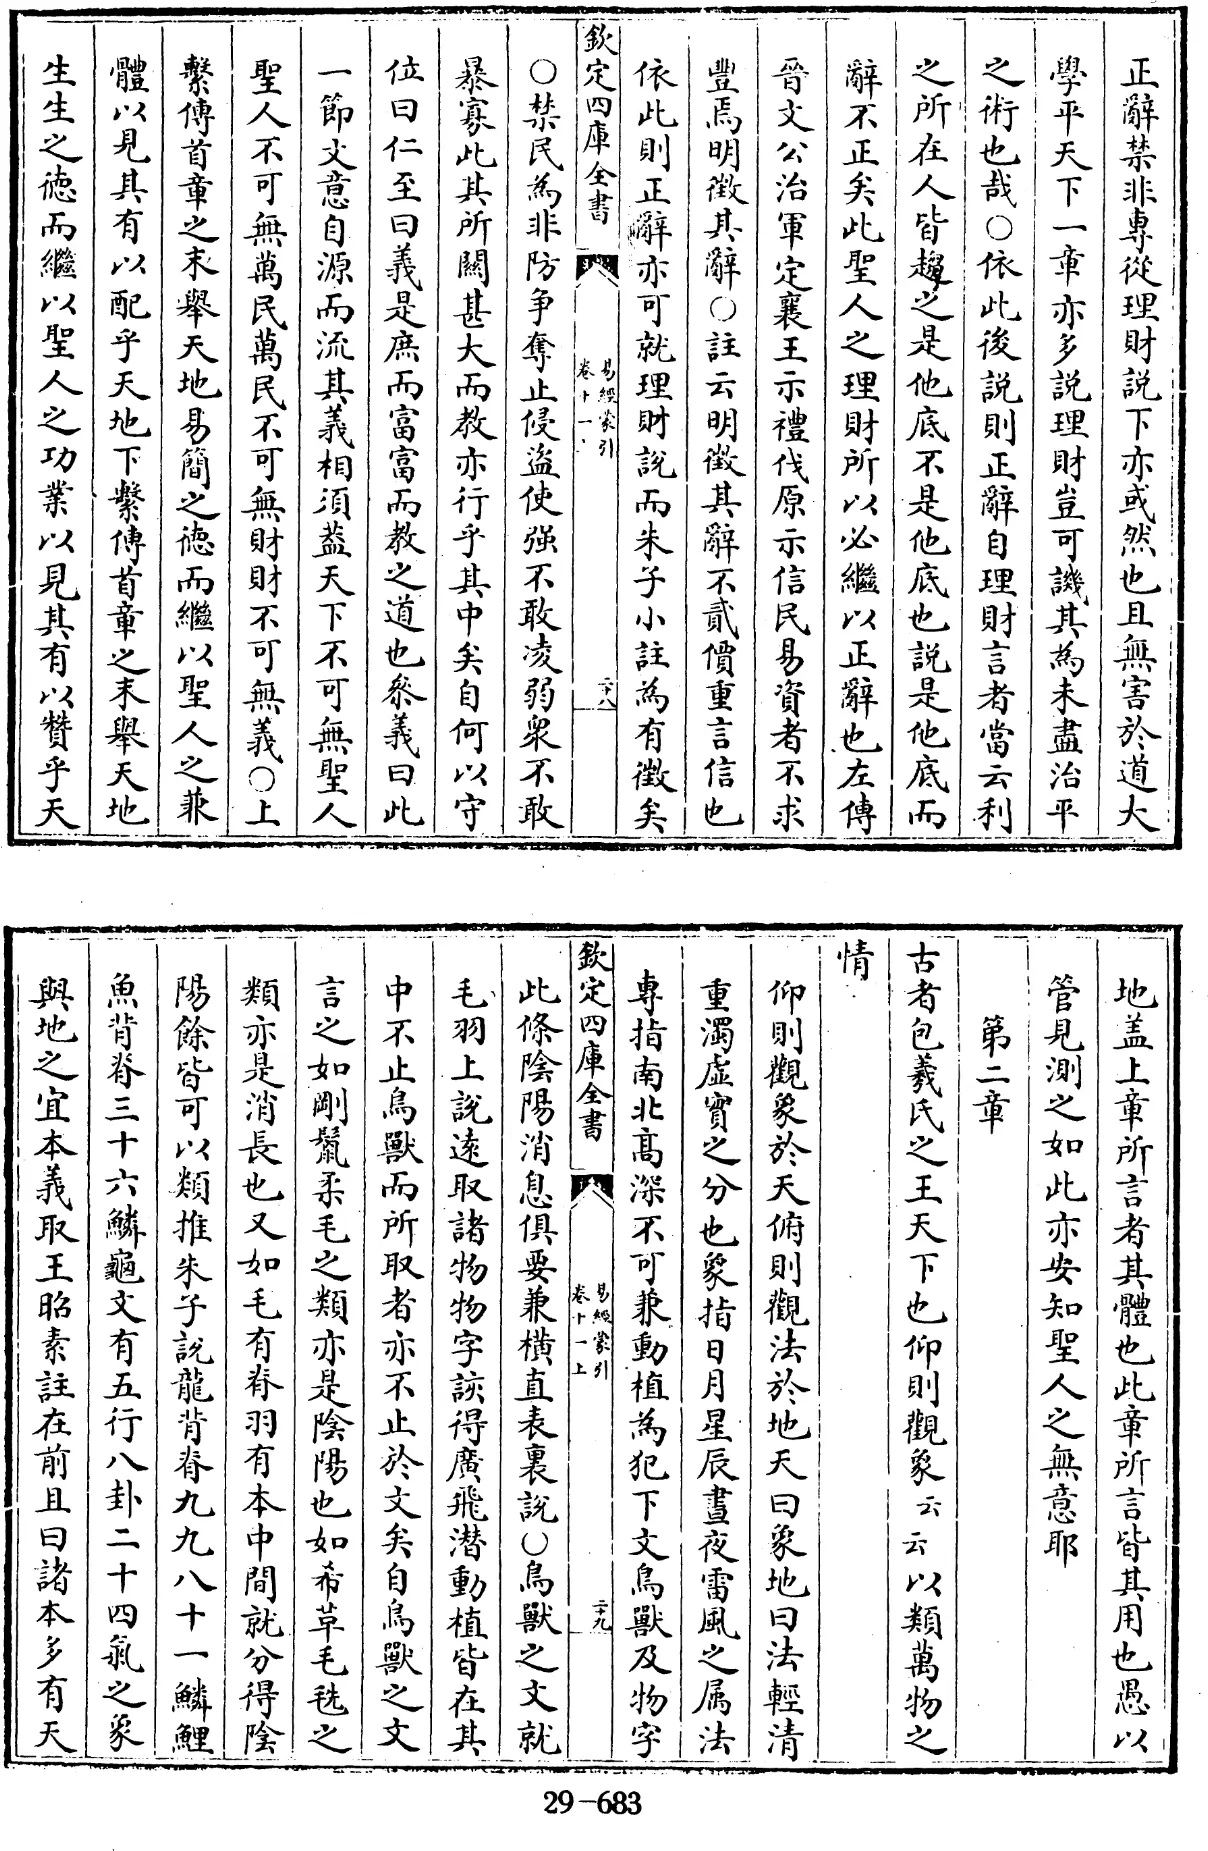 正辭禁非專從理財説下亦或然也且無害於道大
學平天下一章亦多説理財豈可譏其為未盡治平
之術也哉○依此後説則正辭自理財言者當云利
之所在人皆趨之是他底不是他底也説是他底而
辭不正矣此聖人之理財所以必繼以正辭也左傳
晉文公治軍定襄王示禮伐原示信民易資者不求
豐焉明徵其辭○註云明徵其辭不貳價重言信也
依此則正辭亦可就理財說而朱子小註為有徵矣
欽定四庫全書
易經蒙引
卷十一
二十八
○禁民為非防争奪止侵盜使强不敢凌弱衆不敢
暴寡此其所關甚大而教亦行乎其中矣自何以守
位曰仁至曰義是庶而富富而教之道也叅義曰此
一節文意自源而流其義相須蓋天下不可無聖人
聖人不可無萬民萬民不可無財財不可無義○上
繫傳首章之末舉天地易簡之德而繼以聖人之兼
體以見其有以配乎天地下繫傳首章之末舉天地
生生之德而繼以聖人之功業以見其有以贊乎天
地盖上章所言者其體也此章所言皆其用也愚以
管見測之如此亦安知聖人之無意耶
第二章
古者包羲氏之王天下也仰則觀象云云以類萬物之
情
仰則觀象於天俯則觀法於地天曰象地曰法輕清
重濁虛實之分也象指日月星辰晝夜雷風之属法
專指南北高深不可兼動植為犯下文鳥獸及物字
欽定四庫全書
易經蒙引
卷十一上
二十九
此條陰陽消息俱要兼橫直表裏説○鳥獸之文就
毛羽上說遠取諸物物字該得廣飛潛動植皆在其
中不止鳥獸而所取者亦不止於文矣自鳥獸之文
言之如剛鬣柔毛之類亦是陰陽也如希革毛毨之
類亦是消長也又如毛有脊羽有本中間就分得陰
陽餘皆可以類推朱子説龍背脊九九八十一鱗鯉
魚背脊三十六鱗龜文有五行八卦二十四氣之象
與地之宜本義取王昭素註在前且曰諸本多有天
29-683